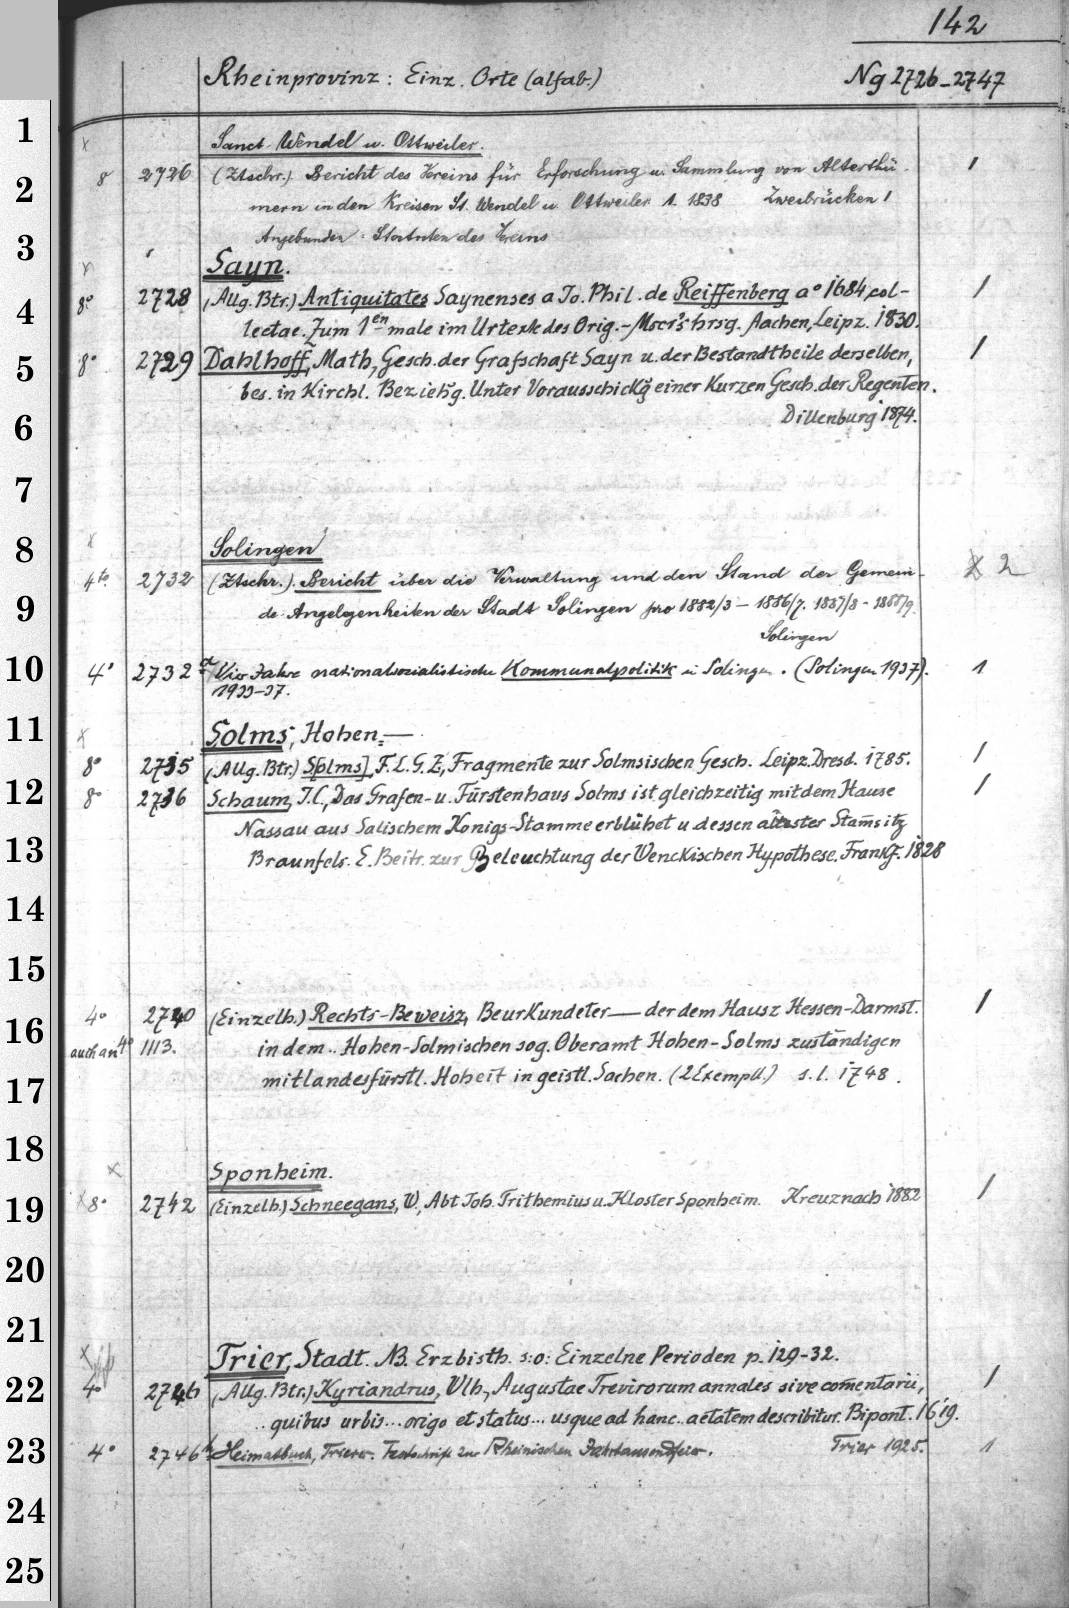 142
Rheinprovinz: Einz. Orte (alfab.) Ng 2726-2747
1
Sanct Wendel u. Ottweiler.
2
8 2726 (Ztschr.) Bericht des Vereins für Erforschung u. Sammlung von Alterthü- 1
mern in den Kreisen St. Wendel u. Ottweiler 1. 1838 Zweibrücken 1
3
Angebunden: Statuten des Vereins
Sayn.
4
8° 2728 (Allg. Btr.) Antiquitates Saynenses a Jo. Phil. de Reiffenberg a° 1684 col- 1
lectae. Zum 1en male im Urtexte des Orig.-Mscr's hrsg. Aachen, Leipz. 1830.
5
8° 2729 Dahlhoff, Math, Gesch. der Grafschaft Sayn u. der Bestandtheile derselben, 1
bes. in Kirchl. Beziehg. Unter Vorausschickg einer Kurzen Gesch. der Regenten.
6
Dillenburg 1874.
7
8
x Solingen
4to 2732 (Ztschr.) Bericht über die Verwaltung und den Stand der Gemein- 2
9
de-Angelegenheiten der Stadt Solingen pro 1882/3 - 1886/7. 1887/8 - 1888/9.
Solingen
10
4° 2732 a Vier Jahre nationalsozialistische Kommunalpolitik in Solingen. (Solingen 1937). 1
1933-37.
11
x Solms, Hohen=—
8° 2735 (Allg. Btr.) S[olms], F. L. G. Z, Fragmente zur Solmsischen Gesch. Leipz. Dresd. 1785. 1
12
8° 2736 Schaum, J. C, Das Grafen- u. Fürstenhaus Solms ist gleichzeitig mit dem Hause 1
Nassau aus Salischem Konigs-Stamme erblühet u. dessen ältester Stam̄sitz
13
Braunfels. E. Beitr. zur Beleuchtung der Wenckischen Hypothese. Frankf. 1828
14
15
16
4° 2740 (Einzelh.) Rechts-Beweisz, BeurKundeter — der dem Hausz Hessen-Darmst. 1
auch an 4° 1113. in dem.. Hohen-Solmischen sog. Oberamt Hohen-Solms zuständigen
17
mit landesfürstl. Hoheit in geistl. Sachen. (2 Exempll.) s. l. 1748.
18
x Sponheim.
19
x 8° 2742 (Einzelh.) Schneegans, W, Abt Joh. Trithemius u. Kloster Sponheim. Kreuznach 1882 1
20
21
x Trier, Stadt. NB. Erzbisth. s: o: Einzelne Perioden p. 129-32.
22
4° 2746 (Allg. Btr.) Kyriandrus, Vlh, Augustae Trevirorum annales sive com̄entarii, 1
.. quibus urbis... origo et status... usque ad hanc.. aetatem describitur. Bipont. 1619.
23
4° 2746 Heimatbuch, Trierer. Festschrift zur Rheinischen Jahrtausendfeier. Trier 1925. 1
24
25